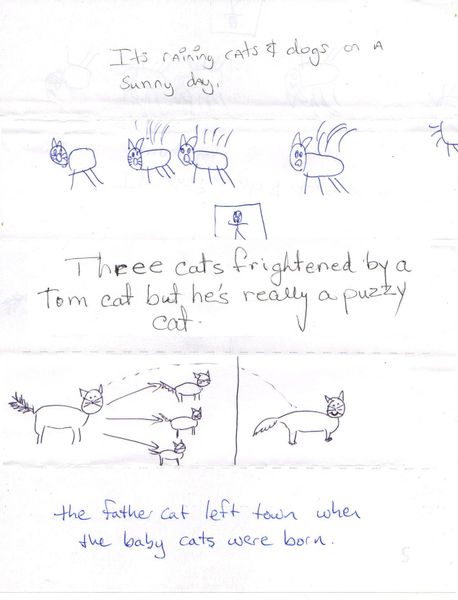 Its raining cats & dogs on a
sunny day.
Three cats frightened by a
Tom cat but he's really a puzzy
cat.
the father cat left town when
the baby cats were born.